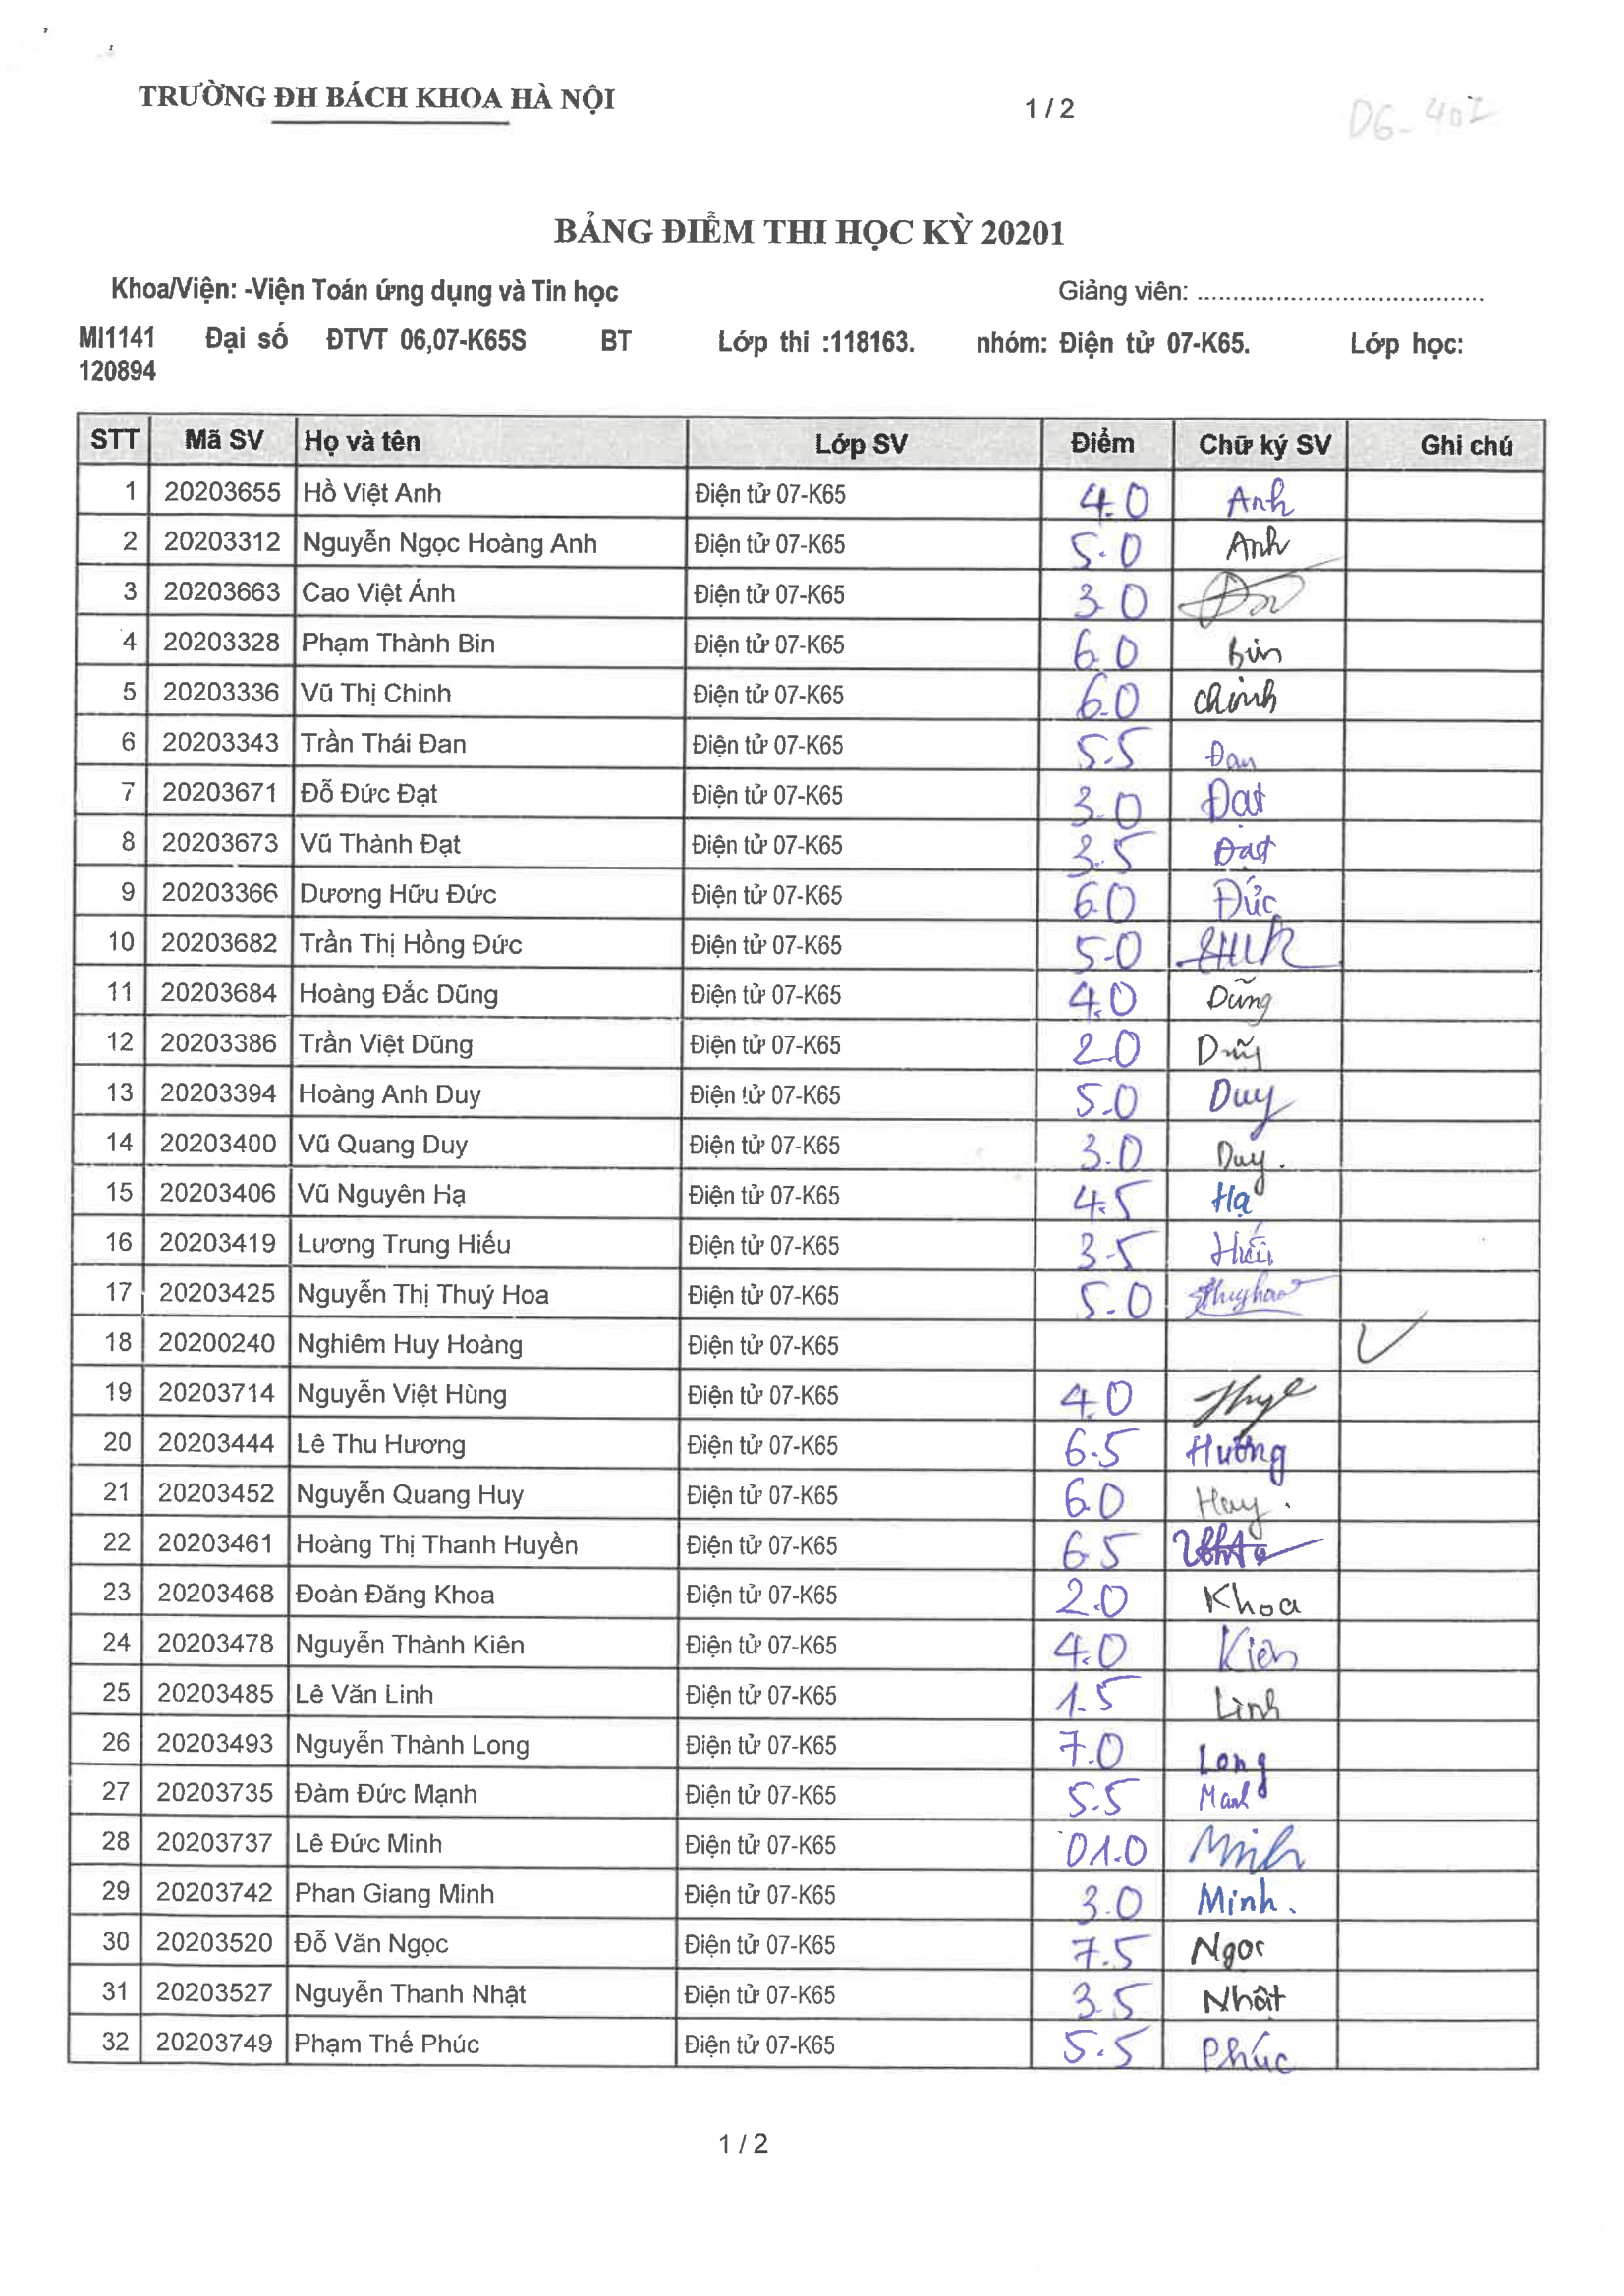 TRƯỜNG ĐH BÁCH KHOA HÀ NỘI 1 / 2 D6-401
BẢNG ĐIỂM THI HỌC KỲ 20201
Khoa/Viện: -Viện Toán ứng dụng và Tin học Giảng viên: ........................................
MI1141 Đại số ĐTVT 06,07-K65S BT Lớp thi :118163. nhóm: Điện tử 07-K65. Lớp học:
120894
STT Mã SV Họ và tên Lớp SV Điểm Chữ ký SV Ghi chú
1 20203655 Hồ Việt Anh Điện tử 07-K65 4.0 Anh
2 20203312 Nguyễn Ngọc Hoàng Anh Điện tử 07-K65 5.0 Anh
3 20203663 Cao Việt Ánh Điện tử 07-K65 3.0
4 20203328 Phạm Thành Bin Điện tử 07-K65 6.0 Bin
5 20203336 Vũ Thị Chinh Điện tử 07-K65 6.0 Chinh
6 20203343 Trần Thái Đan Điện tử 07-K65 5.5 Đan
7 20203671 Đỗ Đức Đạt Điện tử 07-K65 3.0 Đạt
8 20203673 Vũ Thành Đạt Điện tử 07-K65 3.5 Đạt
9 20203366 Dương Hữu Đức Điện tử 07-K65 6.0 Đức
10 20203682 Trần Thị Hồng Đức Điện tử 07-K65 5.0
11 20203684 Hoàng Đắc Dũng Điện tử 07-K65 4.0 Dũng
12 20203386 Trần Việt Dũng Điện tử 07-K65 2.0 Dũng
13 20203394 Hoàng Anh Duy Điện tử 07-K65 5.0 Duy
14 20203400 Vũ Quang Duy Điện tử 07-K65 3.0 Duy.
15 20203406 Vũ Nguyên Hạ Điện tử 07-K65 4.5 Hạ
16 20203419 Lương Trung Hiếu Điện tử 07-K65 3.5 Hiếu
17 20203425 Nguyễn Thị Thuý Hoa Điện tử 07-K65 5.0 Thuyhoa
18 20200240 Nghiêm Huy Hoàng Điện tử 07-K65
19 20203714 Nguyễn Việt Hùng Điện tử 07-K65 4.0
20 20203444 Lê Thu Hương Điện tử 07-K65 6.5 Hương
21 20203452 Nguyễn Quang Huy Điện tử 07-K65 6.0 Huy.
22 20203461 Hoàng Thị Thanh Huyền Điện tử 07-K65 6.5
23 20203468 Đoàn Đăng Khoa Điện tử 07-K65 2.0 Khoa
24 20203478 Nguyễn Thành Kiên Điện tử 07-K65 4.0 Kiên
25 20203485 Lê Văn Linh Điện tử 07-K65 1.5 Linh
26 20203493 Nguyễn Thành Long Điện tử 07-K65 7.0 Long
27 20203735 Đàm Đức Mạnh Điện tử 07-K65 5.5 Manh
28 20203737 Lê Đức Minh Điện tử 07-K65 01.0 Minh
29 20203742 Phan Giang Minh Điện tử 07-K65 3.0 Minh.
30 20203520 Đỗ Văn Ngọc Điện tử 07-K65 7.5 Ngoc
31 20203527 Nguyễn Thanh Nhật Điện tử 07-K65 3.5 Nhật
32 20203749 Phạm Thế Phúc Điện tử 07-K65 5.5 Phúc
1 / 2